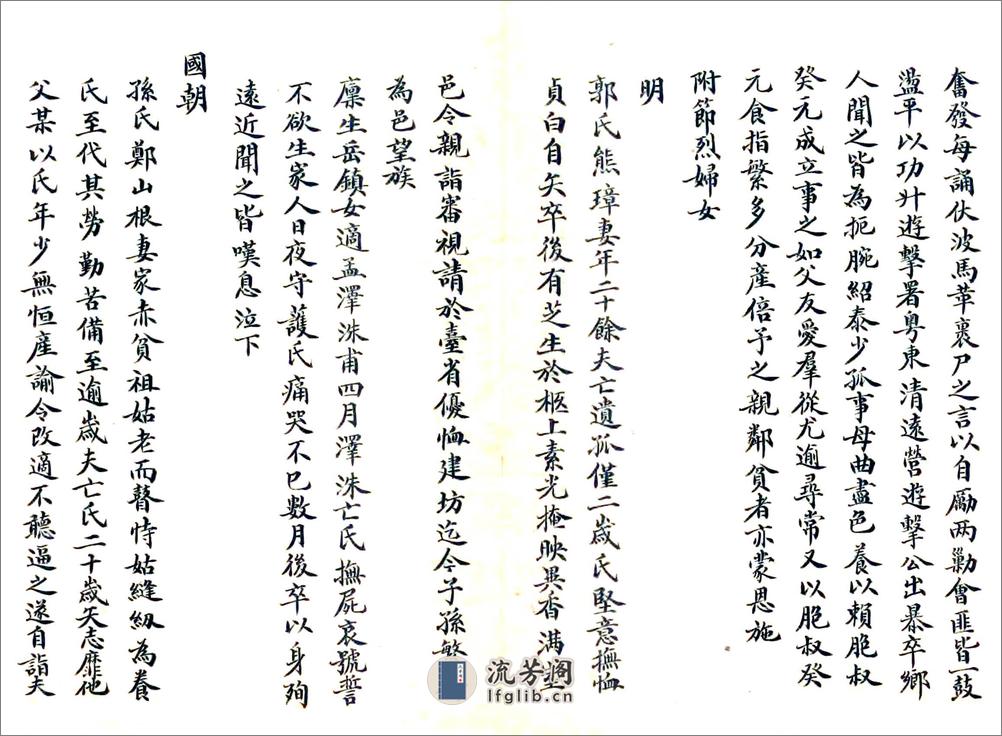 奮發每誦伏波馬革裹尸之言以自勵两勦會匪皆一鼓
盪平以功廾遊擊署粵東清遠營遊擊公出暴卒鄉
人聞之皆為扼腕紹泰少孤事母曲盡色養以賴胞叔
癸元成立事之如父友愛羣從尤逾尋常又以胞叔癸
元食指繁多分産倍予之親鄰貧者亦蒙恩施
附節烈婦女
明
郭氏熊璋妻年二十餘夫亡遺孤僅二歲氏堅意撫恤
貞白自矢卒後有芝生於柩上素光掩映異香满
邑令親詣審視請於臺省優恤建坊迄今子孫繁
為邑望族
廪生岳鎮女適孟澤洙甫四月澤洙亡氏撫屍哀號誓
不欲生家人日夜守護氏痛哭不已數月後卒以身殉
遠近聞之皆嘆息泣下
國朝
孫氏鄭山根妻家赤貧祖姑老而瞽恃姑縫紉為養
氏至代其勞勤苦備至逾歲夫亡氏二十歲矢志靡他
父某以氏年少無恒産諭令改適不聽逼之遂自詣夫
流芳阁
lfglib.cn